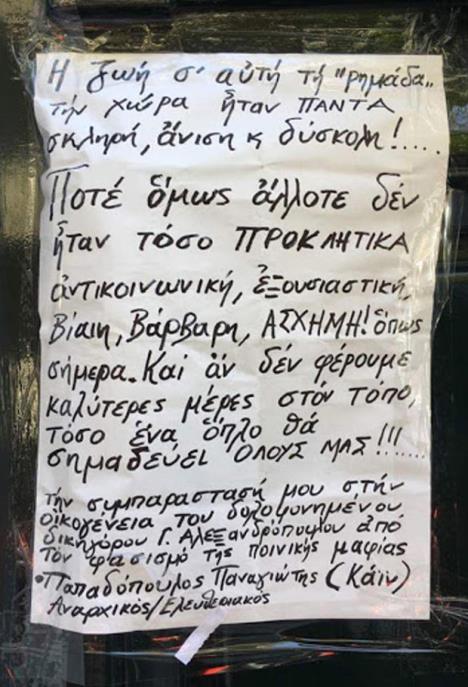 Η ζωή σ' αὐτή τή "ρημάδα"
τήν χώρα ἦταν ΠΑΝΤΑ
σκληρή, ἄνιση κ δύσκολη!.....
Ποτέ ὅμως ἄλλοτε δέν
ἦταν τόσο ΠΡΟΚΛΗΤΙΚΑ
ἀντικοινωνική, ἐξουσιαστική,
Βίαιη, Βάρβαρη, ΑΣΧΗΜΗ! ὅπως
σήμερα. Καί ἄν δέν φέρουμε
καλύτερες μέρες στόν τόπο,
τόσο ἕνα ὅπλο θά
σημαδεύει ΟΛΟΥΣ ΜΑΣ!!!......
τήν συμπαραστασή μου στήν
οἰκογένεια του δολοφονημένου
δικηγόρου Γ. Αλεξανδρόπουλου από
τον φασισμό της ποινικής μαφίας
•Παπαδόπουλος Παναγιώτης (Κάιν)
Αναρχικός/Ελευθεριακός